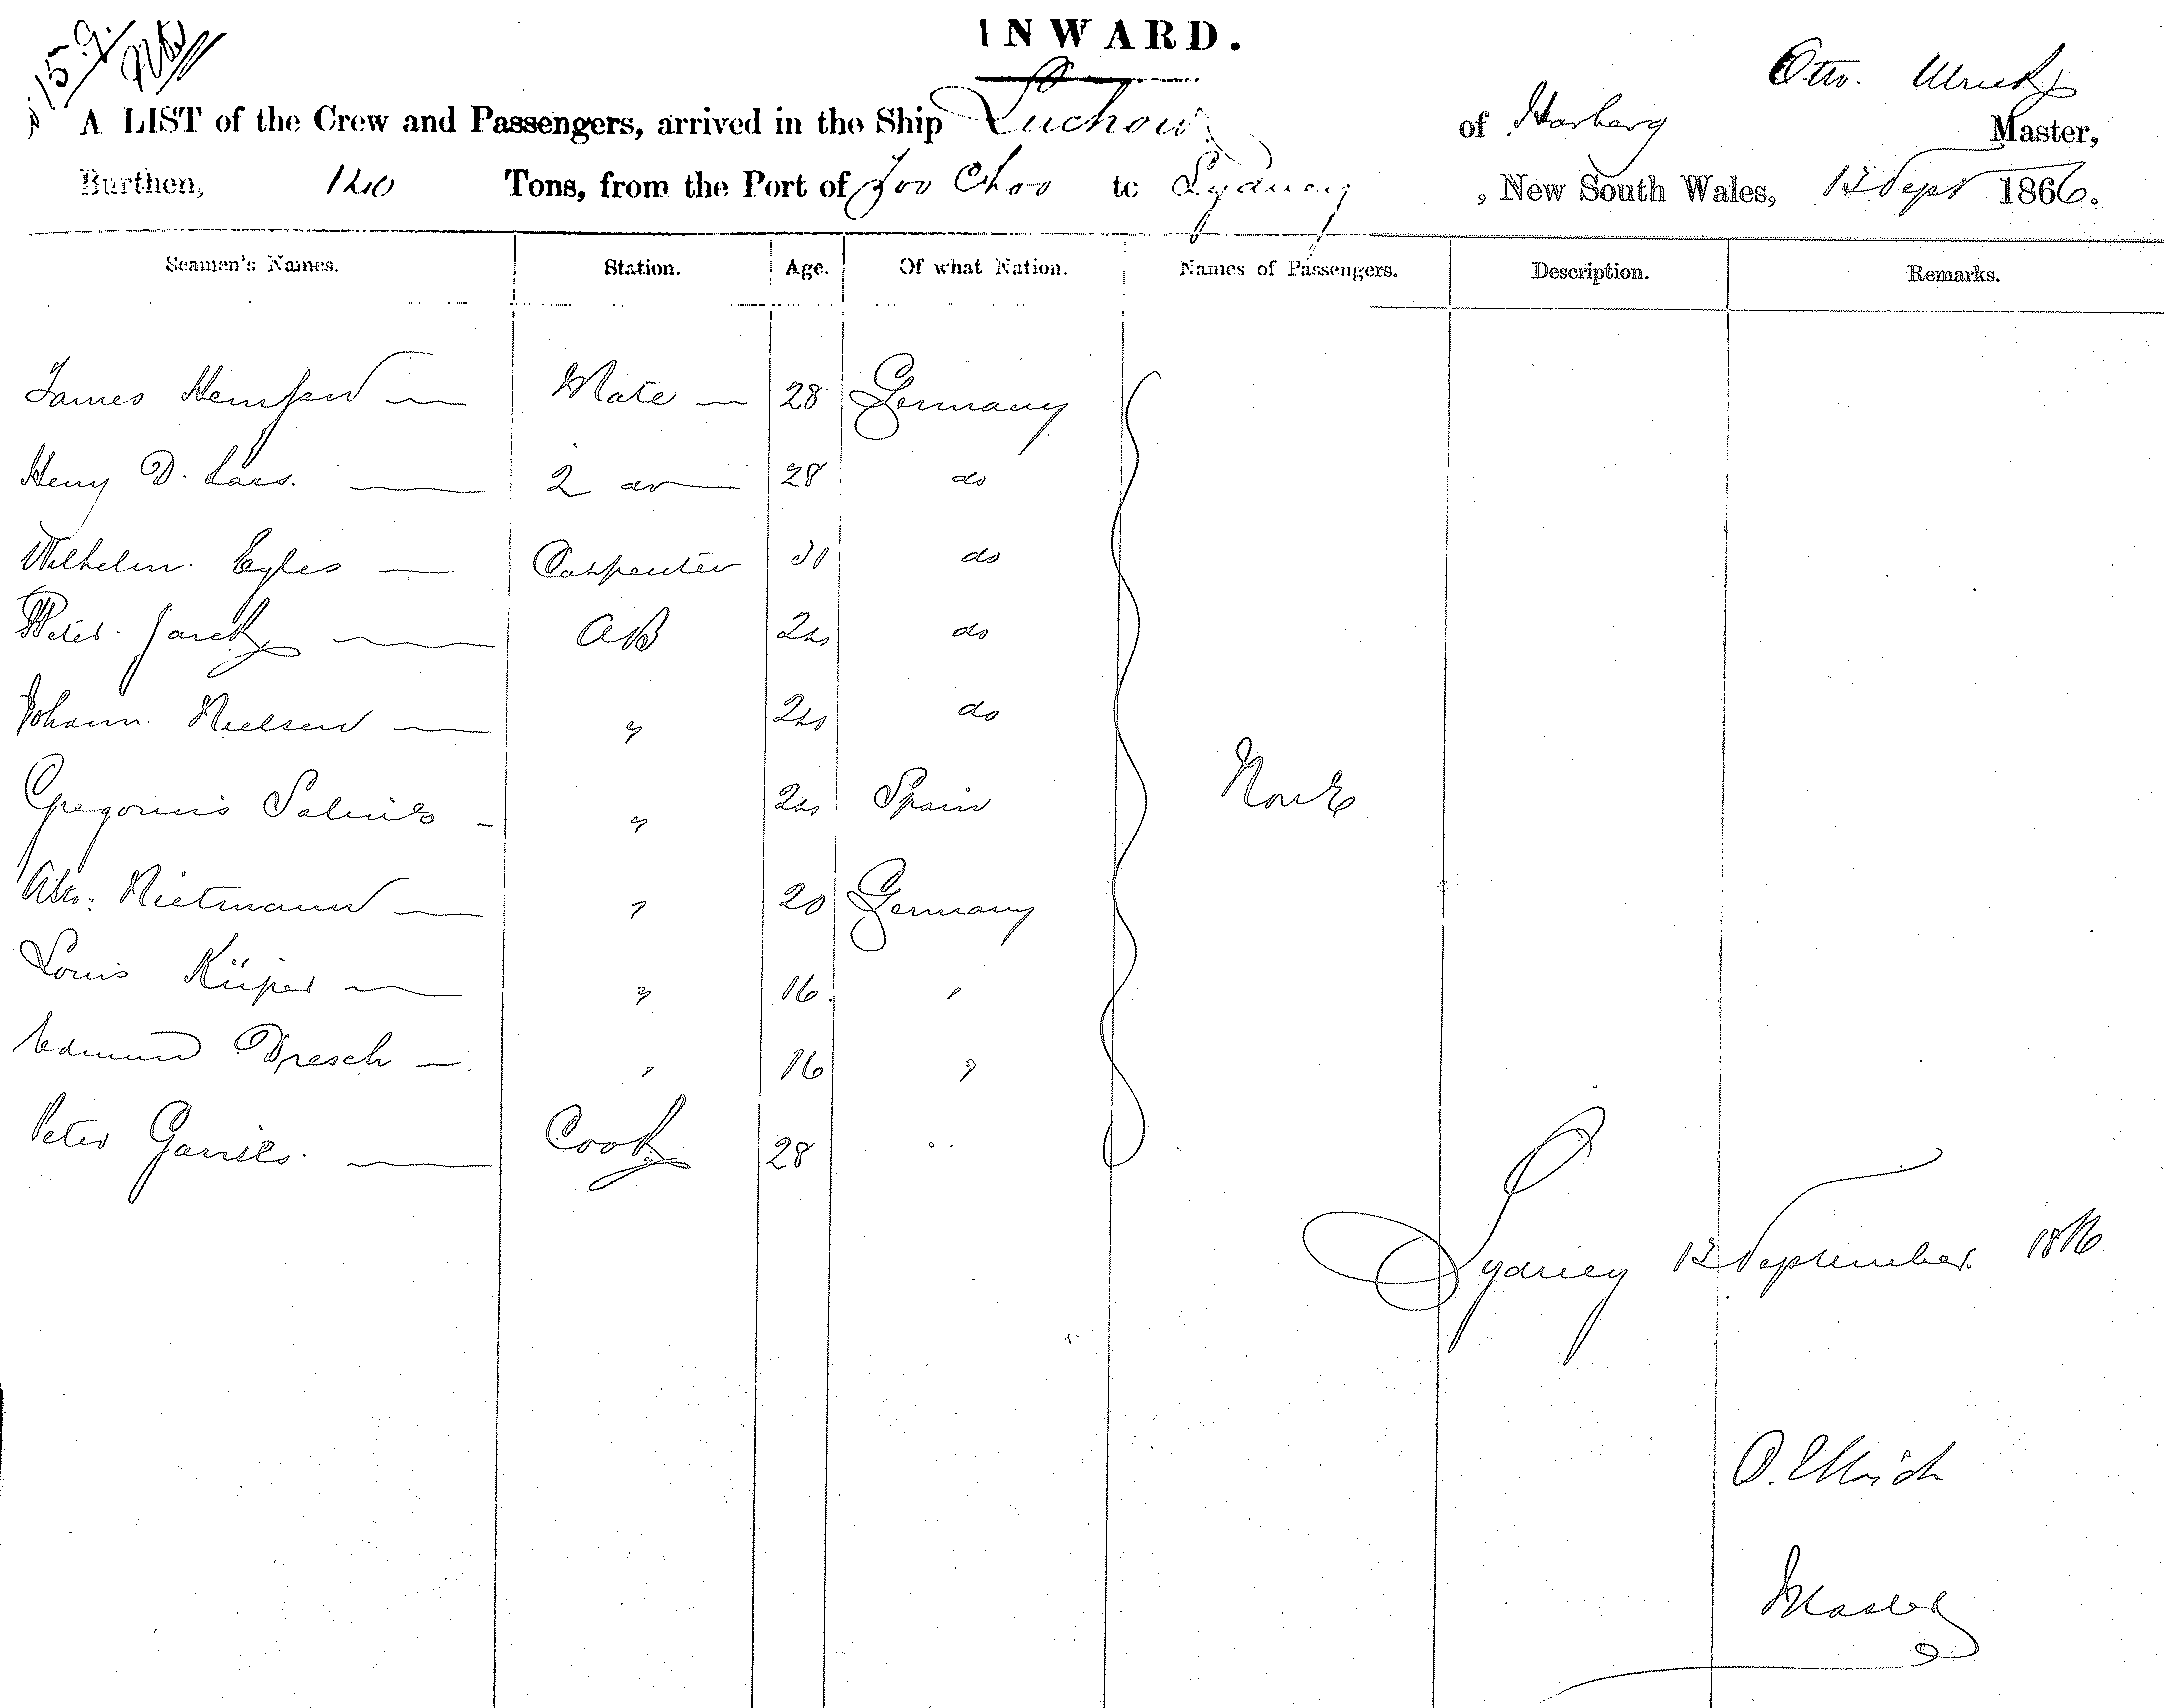 159
INWARD.
Otto. Ulrick
A LIST of the Crew and Passengers, arrived in the Ship Luchow of Harburg Master,
Burthen, Tons, from the Port of Foo Choo to Sydney, New South Wales, Sept 1866.
Seamen's Names. Station. Age. Of what Nation. Names of Passengers. Description. Remarks.
James Mate 28 Germany
Henry D. 2 do 28 do
Wilhelm. Eyles Carpenter do
Peter. Jarck AB do
Johann. Nielsen " do
" Spain None
Nietmann " 20 Germany
Louis Küper " 16. "
Edmund Dresch " 16 "
Peter Cook 28 "
Sydney September 1866
O. Ulrich
Master